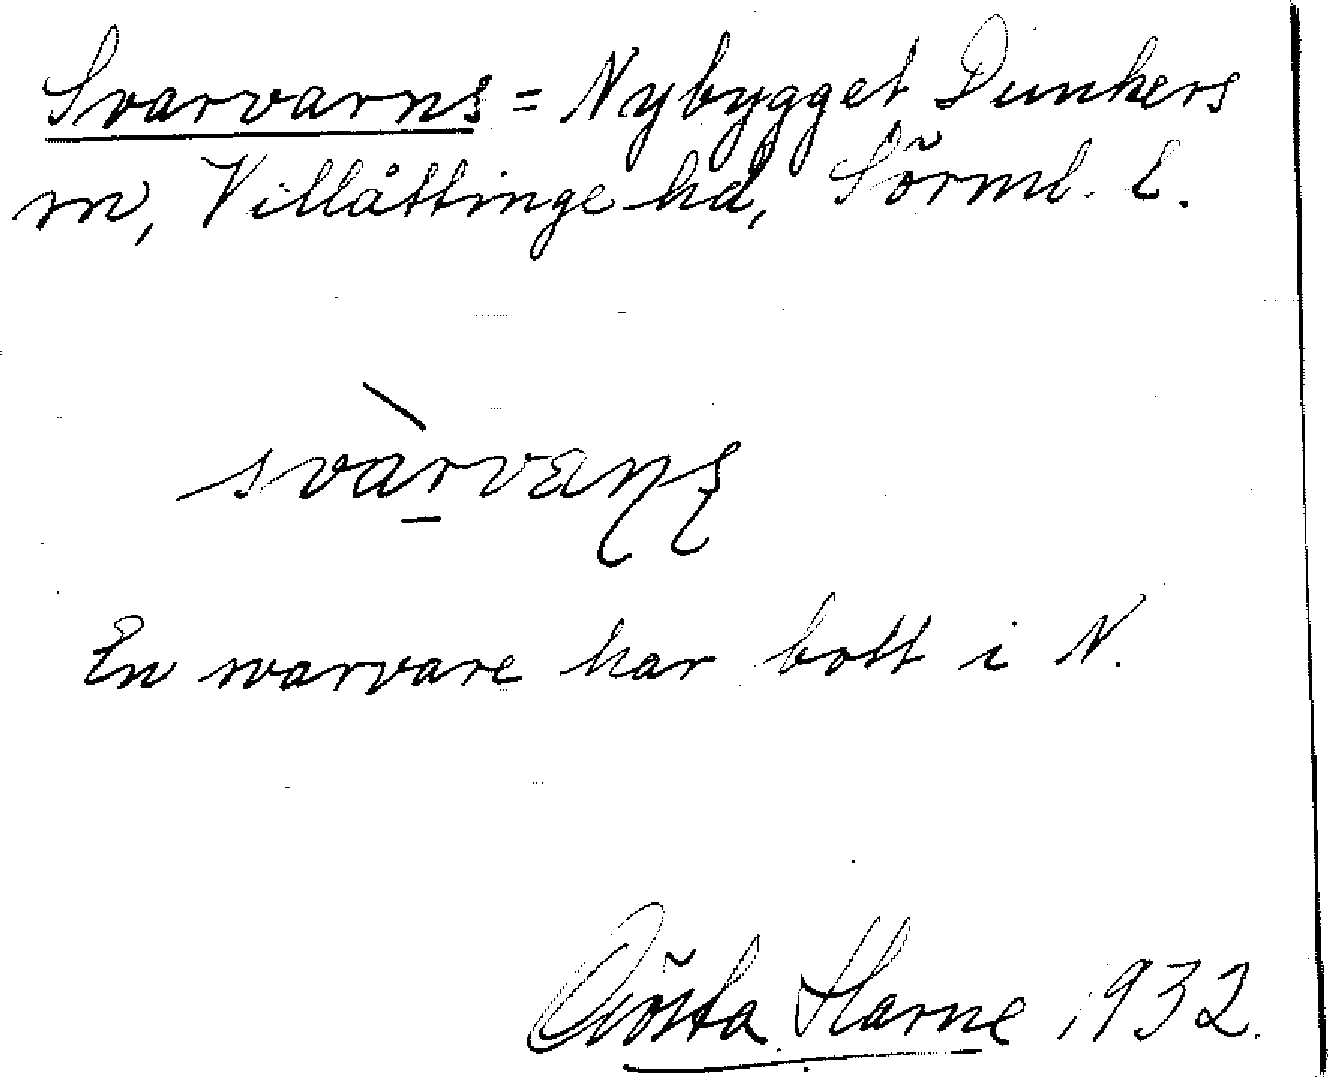 Svarvarns = Nybygget Dunkers
sn, Villåttinge hd, Sörml. l.
svàrvaɳʂ
En svarvare har bott i N.
Gösta Harne 1932.